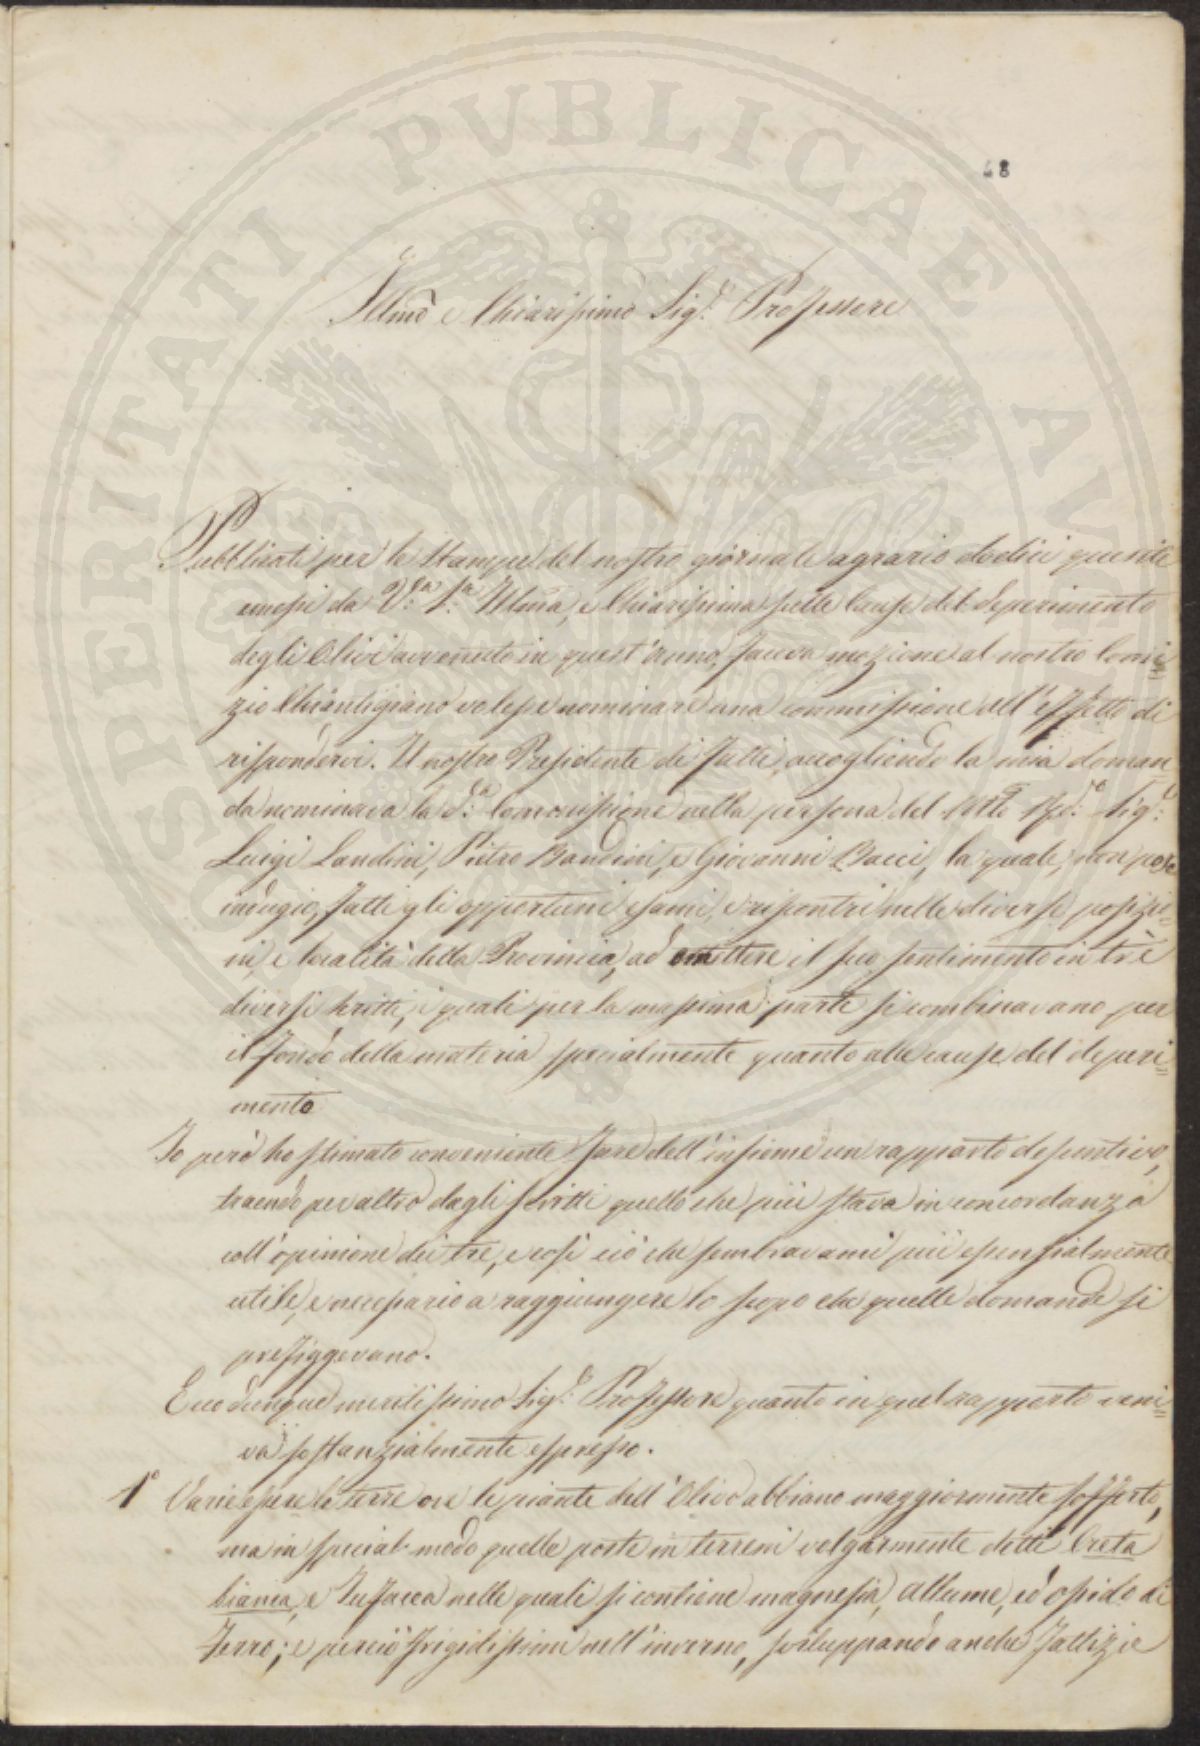 48
Illmo e Chiarissimo Sig.r Professore
Pubblicati per le stampe del nostro giornale agrario dodici quesiti
emessi da V.a S.a Illma, e Chiarissima sulle cause del deperimento
degli Olivi avvenuto in quest'anno, faceva mozione al nostro Comi=
zio Chiantigiano volesse nominare una commissione all'effetto di
rispondervi. Il nostro Presidente di fatti, accogliendo la mia doman
da nominava la d.a Commissione nella persona del Sig.r
Luigi Landini, Pietro Bandini, e Giovanni Bacci, la quale, non pose
indugio, fatti gli opportuni esami, e riscontri nelle diverse posizio=
ni, e località della Provincia, ad emettere il suo sentimento in trè
diversi scritti, i quali per la massima parte si combinavano per
il fondo della materia specialmente quanto alle cause del deperi=
mento
Io però ho stimato conveniente fare dell'insieme un rapporto desuntivo,
traendo per altro dagli scritti quello che più stava in concordanza
coll'opinione dei tre, e così ciò che sembravami più essenzialmente
utile, e necessario a raggiungere lo scopo che quelle domande si
prefiggevano.
Ecco dunque meritissimo Sig.r Professore quanto in quel rapporto veni=
va sostanzialmente espresso.
1° Varie essere le terre ove le piante dell'Olivo abbiano maggiormente sofferto,
ma in special modo quelle poste in terreni volgarmente detti Creta
bianca, e Tufacea nelle quali si contiene magnesia, allume, ed ossido di
ferro; e perciò frigidissimi nell'inverno, sviluppando anche fattizie